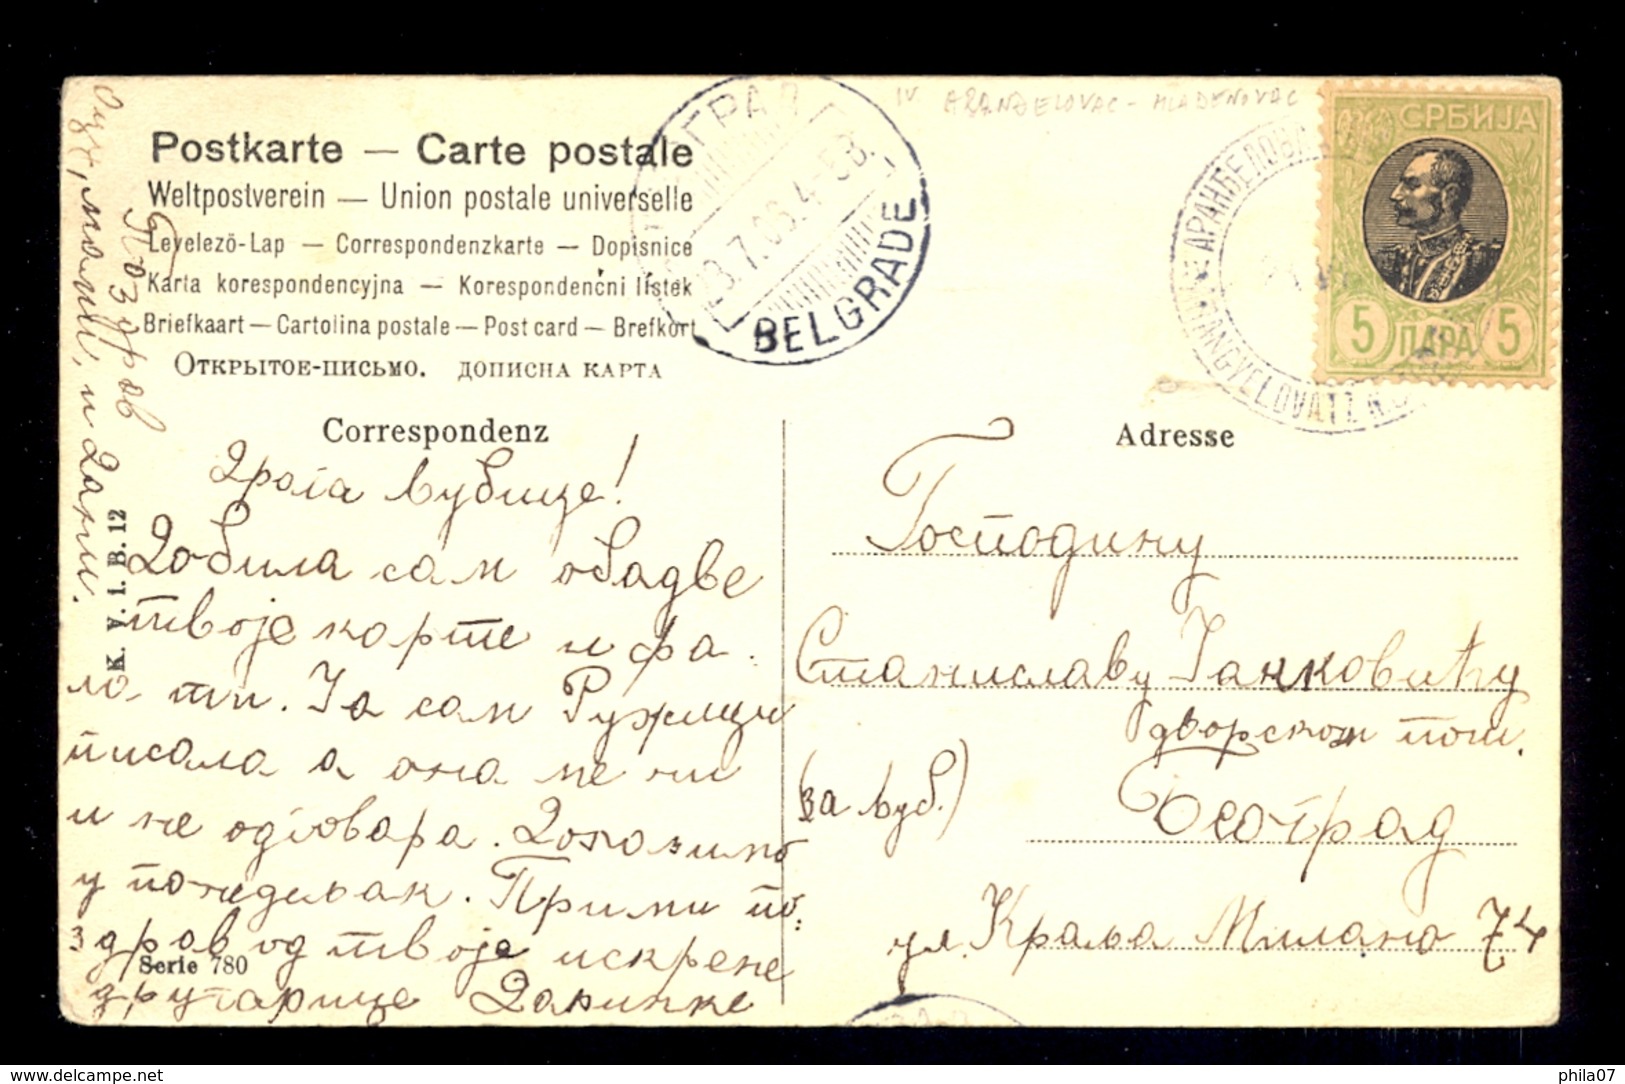 Postkarte — Carte postale
Weltpostverein — Union postale universelle
Levelező-Lap — Correspondenzkarte — Dopisnice
Karta korespondencyjna — Korespondencni lístek
Briefkaart — Cartolina postale — Post card — Brefkort
Открытое-письмо. дописна карта
BELGRADE
IV ARANĐELOVAC - MLADENOVAC
СРБИЈА
5 ПАРА 5
Correspondenz
Adresse
Драга Љубице!
Добила сам обадве
твоје карте и фа
ла ти. Ја сам Ружици
писала а она ме ни
и не одговара. Долазимо
у понедељак. Прими по:
здрав од твоје искрене
другарице Даринке
Поздрав
мами, и Дари.
K. V. i. B. 12
Serie 780
Господину
Станиславу Јанковићу
дворском пош.
(за Љуб.)
Београд
ул. Краља Милана 74
delcampe.net
phila07